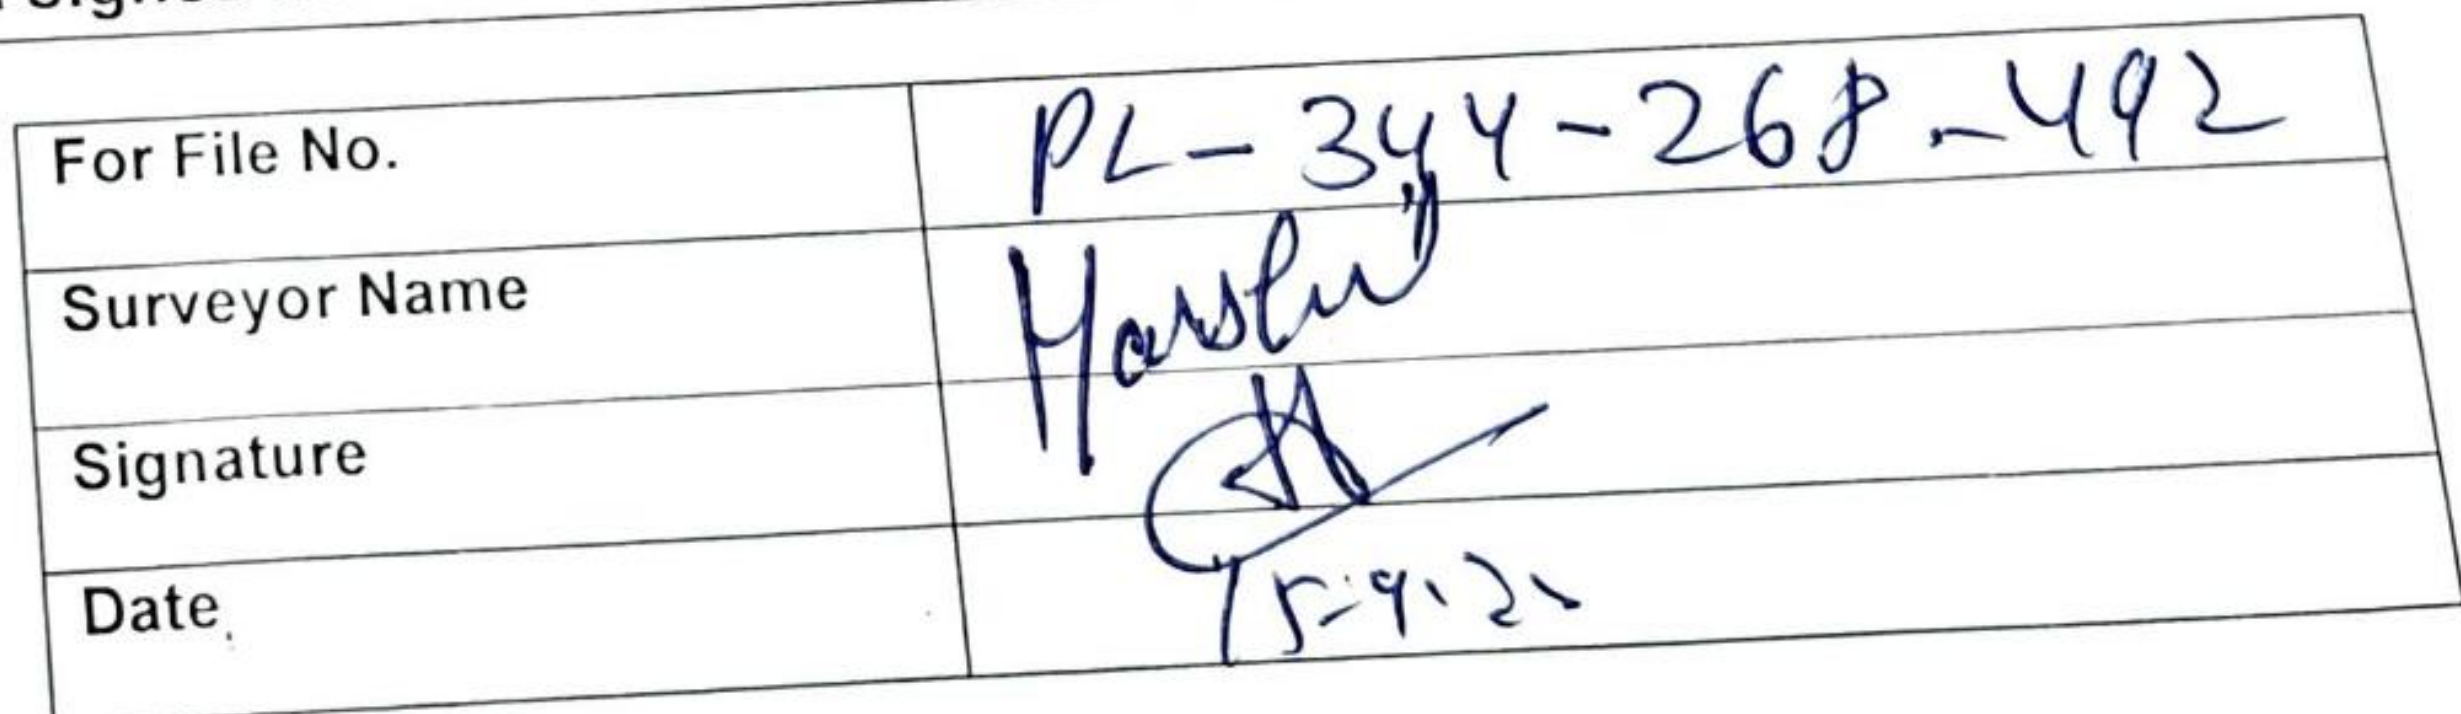 For File No. PL-344-268-492
Surveyor Name Harshit
Signature
Date 15-9-2